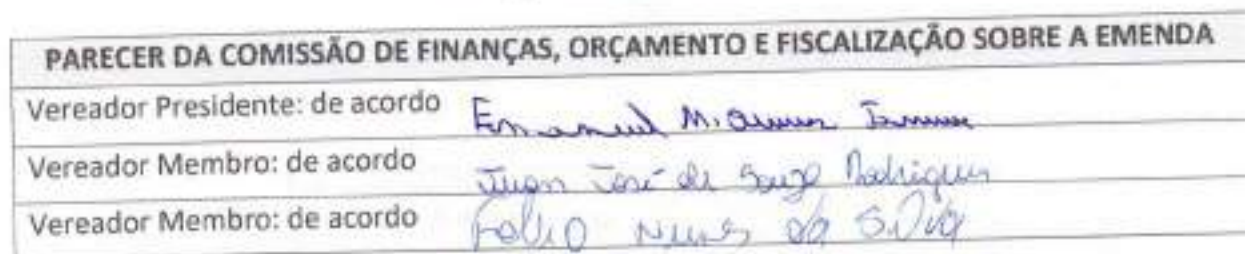 PARECER DA COMISSÃO DE FINANÇAS, ORÇAMENTO E FISCALIZAÇÃO SOBRE A EMENDA
Vereador Presidente: de acordo Emanuel M.
Vereador Membro: de acordo Juan José de Souza Rodrigues
Vereador Membro: de acordo Fabio Nunes da Silva